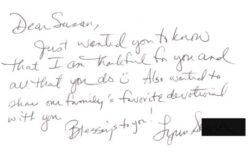 Dear Susan,
Just wanted you to know
that I am thankful for you and
all that you do ☺ Also wanted to
share our family's favorite devotional
with you.
Blessings to you!
Lynn